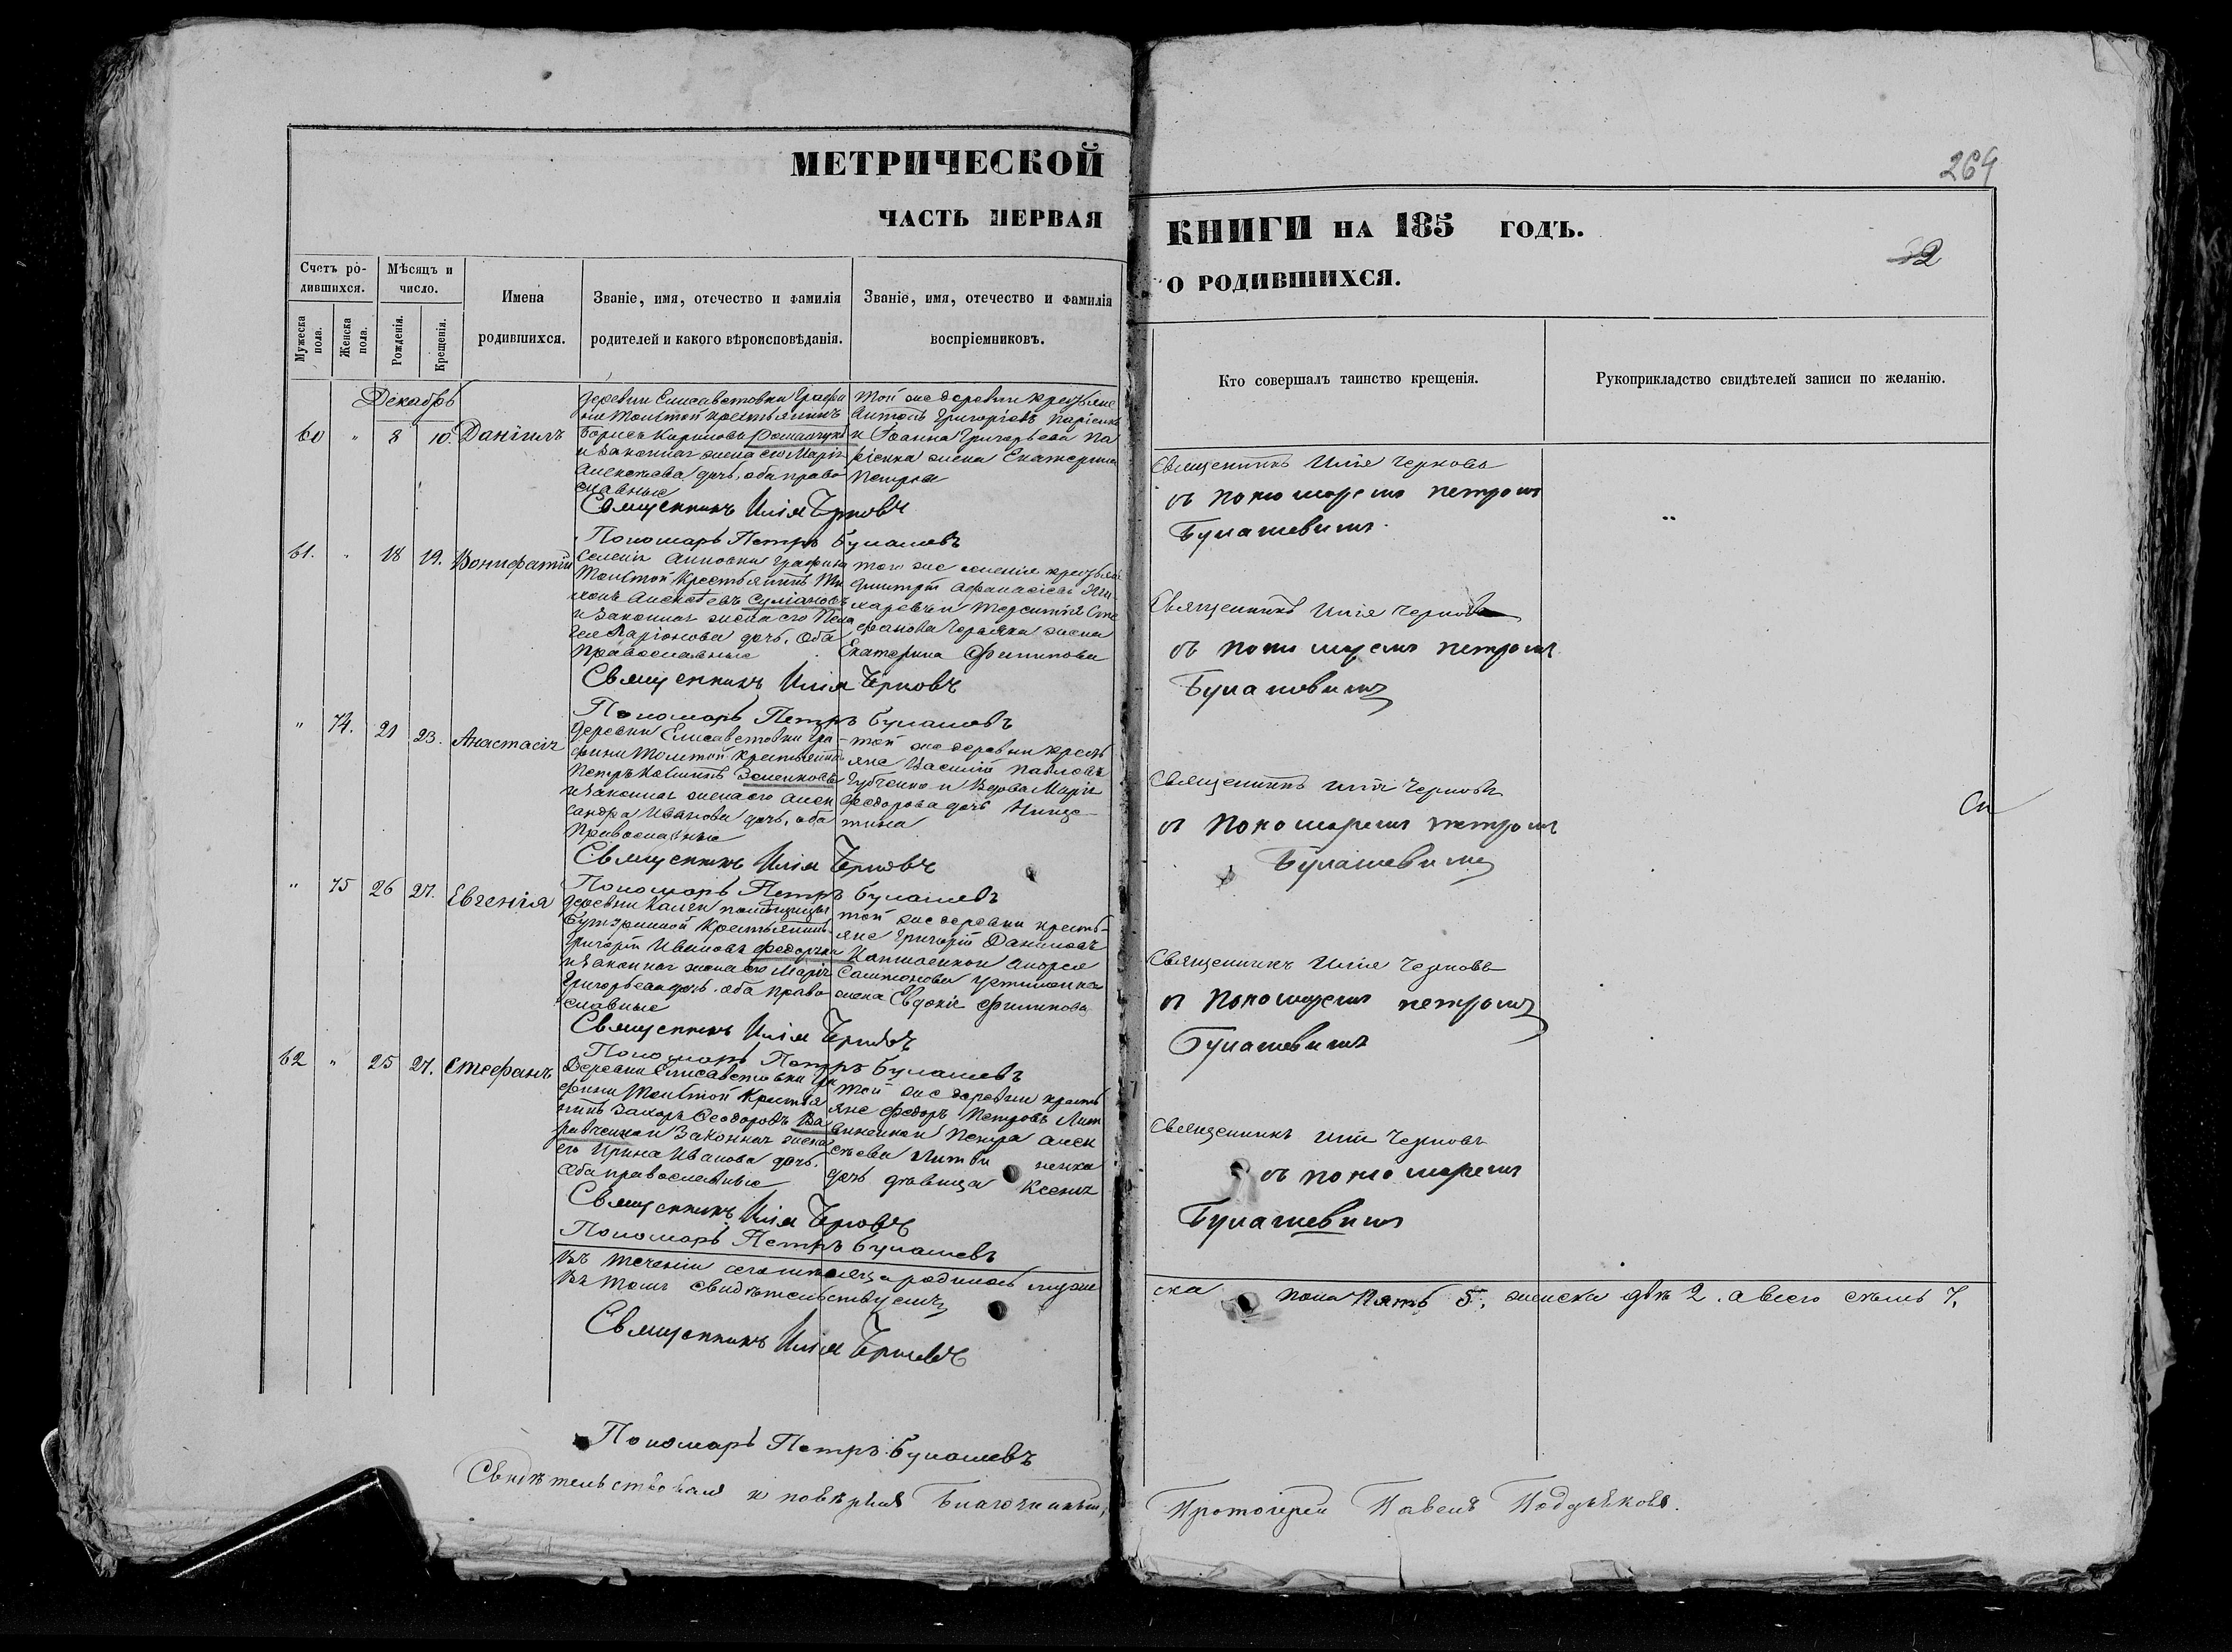 МЕТРИЧЕСКОЙ
ЧАСТЬ ПЕРВАЯ
264
КНИГИ НА 185 ГОДЪ.
О РОДИВШИХСЯ.
32
Счетъ ро-
дившихся.
Мужеска пола.
Женска пола.
Мѣсяцъ и
число.
Рожденія.
Крещенія.
Имена
родившихся.
Званіе, имя, отечество и фамилія
родителей и какого вѣроисповѣданія.
Званіе, имя, отечество и фамилія
воспріемниковъ.
Кто совершалъ таинство крещенія.
Рукоприкладство свидѣтелей записи по желанію.
Декабрь
60 " 8 10. Даніилъ
деревни Елисаветовки Графи
ни Толстой крестьянинъ
Борисъ Карповъ Романчукъ
и законная жена его Марія
Алексѣева дочь, оба право
славные
той же деревни крестьяне
Антонъ Григорьевъ
и Іоанна Григорьева
жена Екатерина
Петрова
Священникъ Илія Черновъ
Пономарь Петръ Булашевъ
Священникъ Илія Черновъ
съ пономаремъ Петромъ
Булашевымъ.
"
61. " 18 19. Вонифатій
Селенія Анновки Графини
Толстой крестьянинъ
Алексѣевъ
и законная жена его Пела
гея Ларіонова дочь. Оба
православные
того же селенія крестьяне
Дмитрій Афанасіевъ
и Терентія Сте
фанова жена
Екатерина Филипова
Священникъ Илія Черновъ
Пономарь Петръ Булашевъ
Священникъ Илія Черновъ
съ пономаремъ Петромъ
Булашевымъ
" 74. 21 23. Анастасія
деревни Елисаветовки Гра-
фини Толстой крестьянинъ
Петръ
и законная жена его Алек
сандра Иванова дочь, оба
православные
той же деревни кресть
яне Василій Павловъ
Губченко и вдова Марія
Федорова дочь
Священникъ Илія Черновъ
Пономарь Петръ Булашевъ
Священникъ Илія Черновъ
съ пономаремъ Петромъ
Булашевымъ
" 75 26 27. Евгенія
деревни помѣщицы
крестьянинъ
Григорій Ивановъ Федорченко
и законная жена его Марія
Григорьева дочь. оба право
славные
той же деревни кресть-
яне Григорій Даниловъ
и Андрея
жена Евдокія Филипова
Священникъ Илія Черновъ
Пономарь Петръ Булашевъ
Священникъ Илія Черновъ
съ пономаремъ Петромъ
Булашевымъ
62 " 25 27. Стефанъ
Деревни Елисаветовки Гра
фини Толстой крестья
нинъ Захаръ Феодоровъ
и законная жена
его Ирина Иванова дочь.
Оба православные
той же деревни кресть
яне Федоръ Петровъ Лит
виненко и Петра Алек
сѣева Литви ненка
дочь дѣвица Ксенія
Священникъ Илія Черновъ
Пономарь Петръ Булашевъ
Священникъ Илія Черновъ
съ пономаремъ
Булашевымъ
Въ теченіи сего мѣсяца родилось муже ска пола пять 5, женска двѣ 2. а всего семь 7.
въ томъ свидѣтельствуемъ
Священникъ Илія Черновъ
Пономарь Петръ Булашевъ
Свидѣтельствовалъ и повѣрялъ Благочинный, Протоіерей Павелъ Подъяковъ.